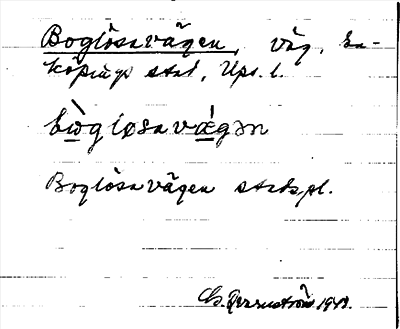 Boglösavägen, väg, En-
köpings stad, Ups. l.
bὼgløsavǽgən
Boglösavägen stadspl.
1948.